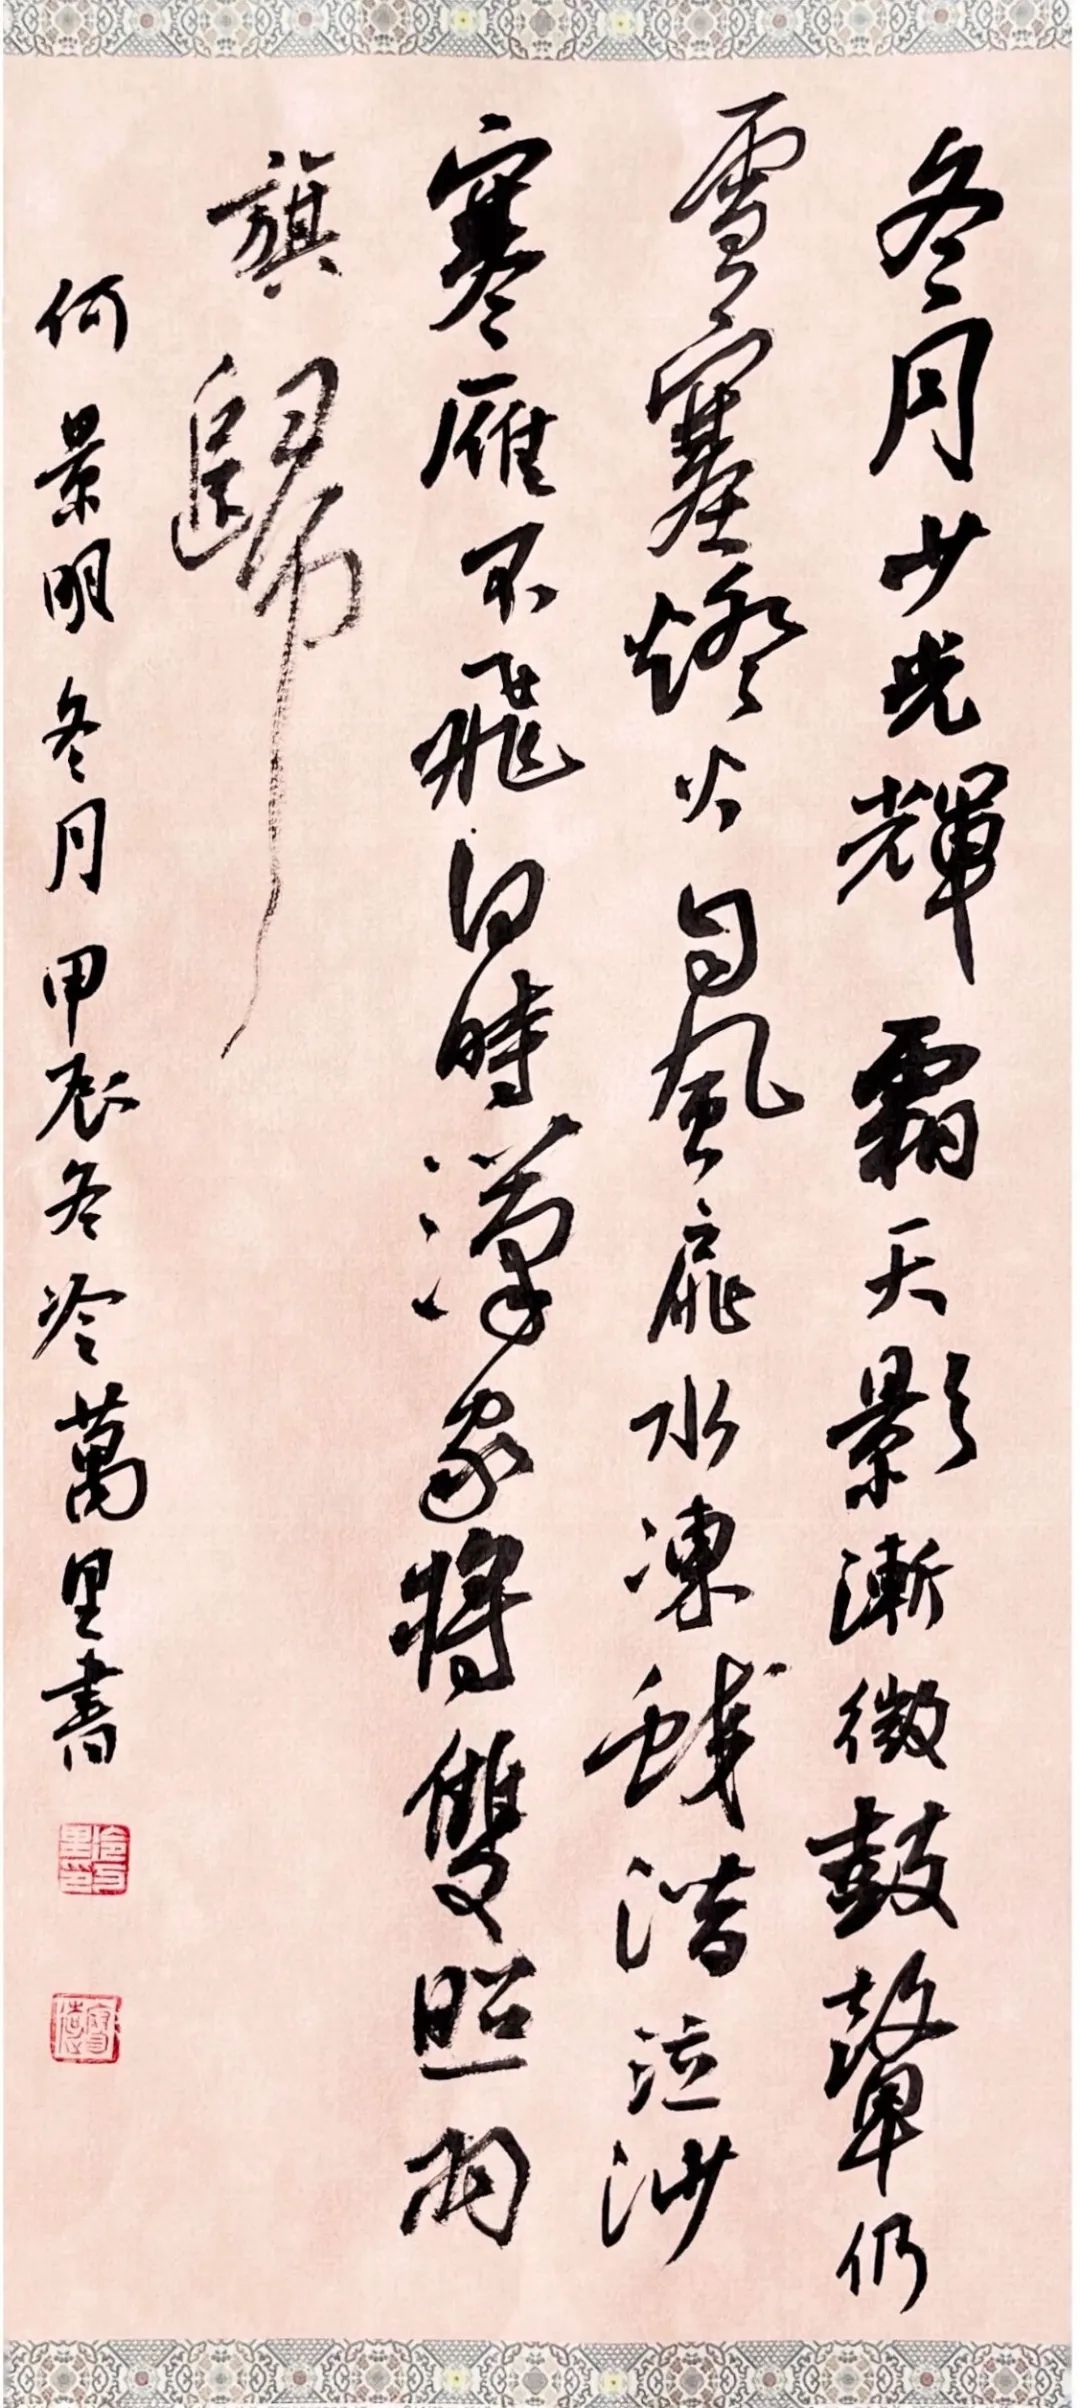 冬月少光輝霜天影漸微鼓鼙仍
雪塞燈火自風扉水凍潛泣沙
寒雁不飛何時漢家將雙照羽
旗歸
何景明冬月甲辰冬冷萬里書